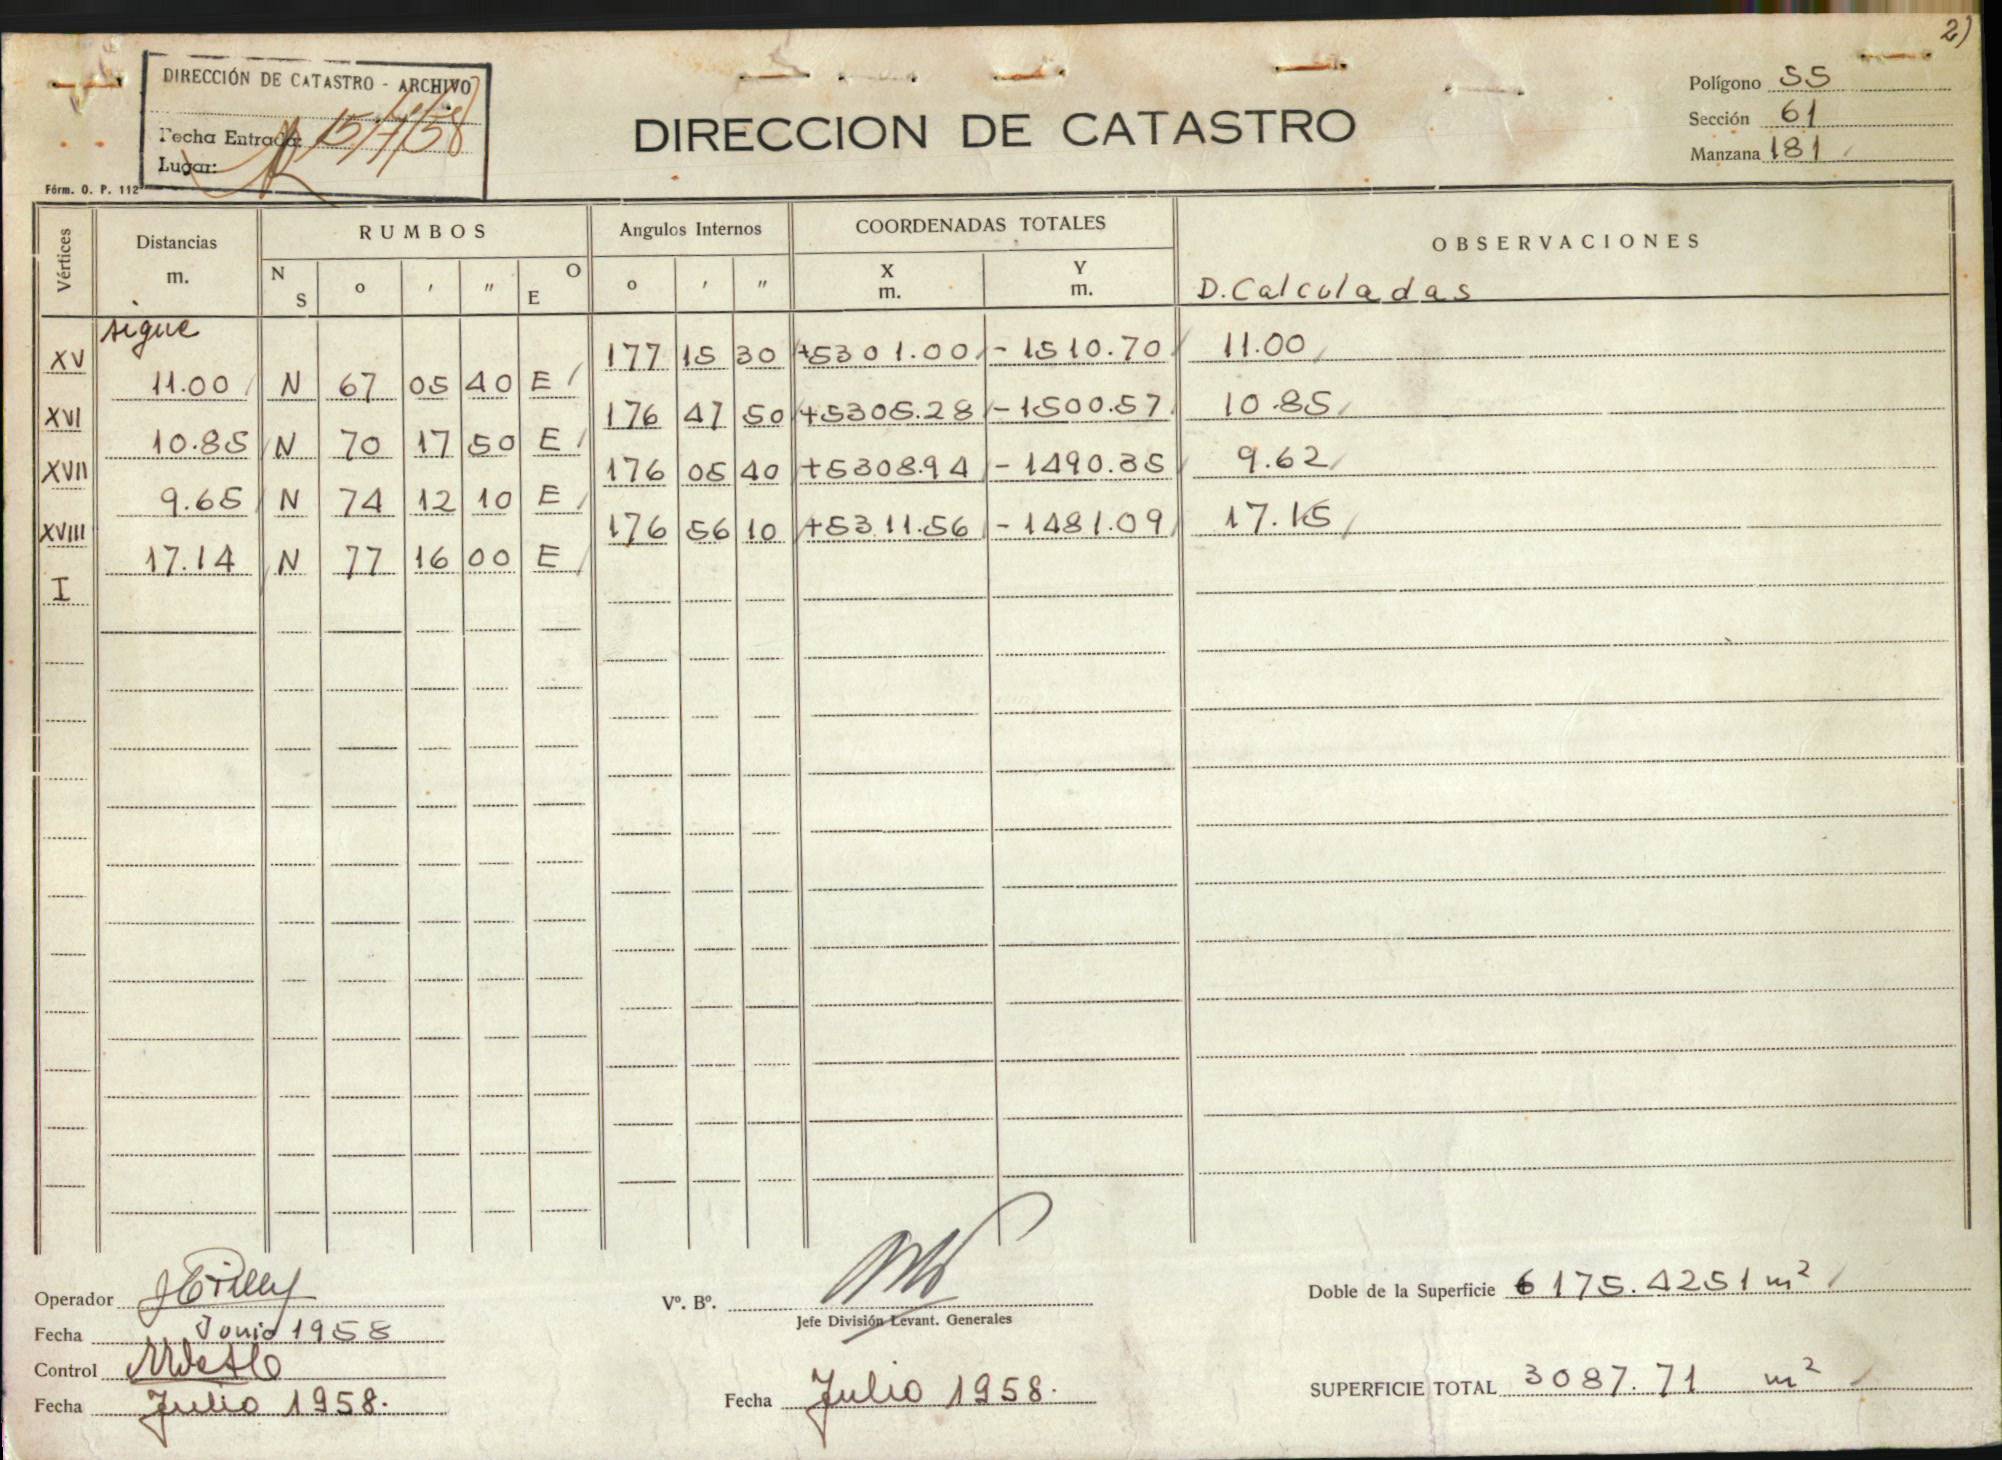 2)
DIRECCIÓN DE CATASTRO - ARCHIVO
Fecha Entrada: 15/7/58
Lugar:
Fórm. O. P. 112
DIRECCION DE CATASTRO
Polígono 55
Sección 61
Manzana 181
Vértices Distancias m. RUMBOS Angulos Internos COORDENADAS TOTALES OBSERVACIONES
N S o ' " E O o ' " X m. Y m. D. Calculadas
sigue
XV 177 15 30 +5301.00 - 1510.70 11.00
11.00 N 67 05 40 E
XVI 176 47 50 +5305.28 - 1500.57 10.85
10.85 N 70 17 50 E
XVII 176 05 40 +5308.94 - 1490.35 9.62
9.65 N 74 12 10 E
XVIII 176 56 10 +5311.56 - 1481.09 17.15
17.14 N 77 16 00 E
I
Operador
Fecha Junio 1958
Control
Fecha Julio 1958.
Vº. Bº.
Jefe División Levant. Generales
Fecha Julio 1958.
Doble de la Superficie 6175.4251 m²
SUPERFICIE TOTAL 3087.71 m²